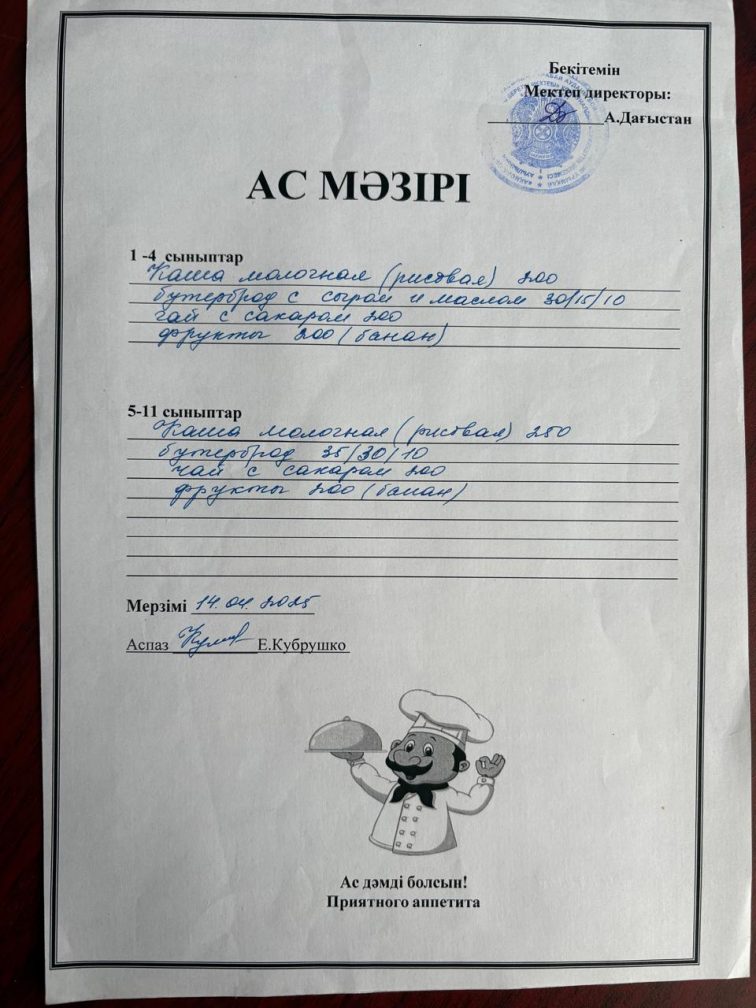 Бекітемін
Мектеп директоры:
А.Дағыстан
АС МӘЗІРІ
1 -4 сыныптар
Каша молочная (рисовая) 200
бутерброд с сыром и маслом 30/15/10
чай с сахаром 200
фрукты 200 (банан)
5-11 сыныптар
Каша молочная (рисовая) 250
бутерброд 35/30/10
чай с сахаром 200
фрукты 200 (банан)
Мерзімі 14.04.2025
Аспаз Е.Кубрушко
Ас дәмді болсын!
Приятного аппетита